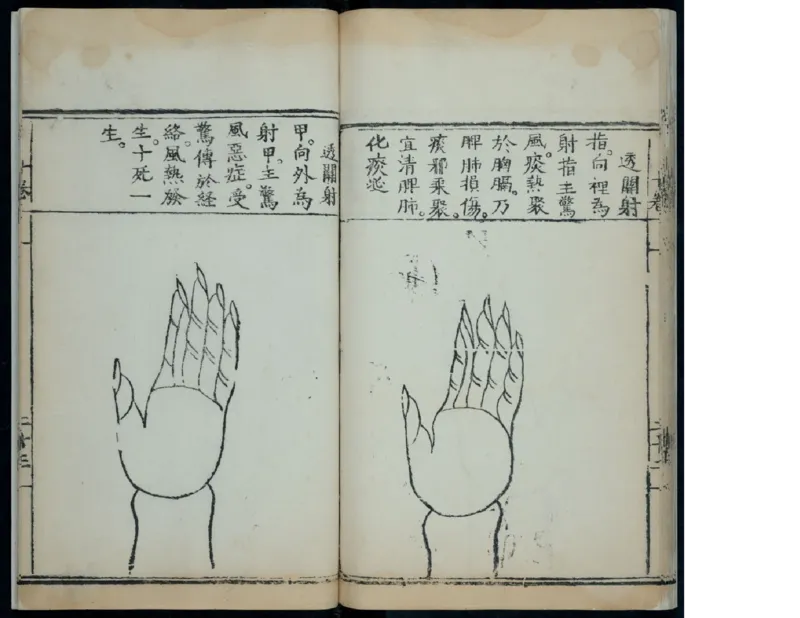 透關射
指。向裡為
射指主驚
風。痰熱聚
於胸膈。乃
脾肺損傷。
痰邪乘聚。
宜清脾肺。
化痰涎
透關射
甲。向外為
射甲。主驚
風惡症。受
驚傳於經
絡。風熱發
生。十死一
生。